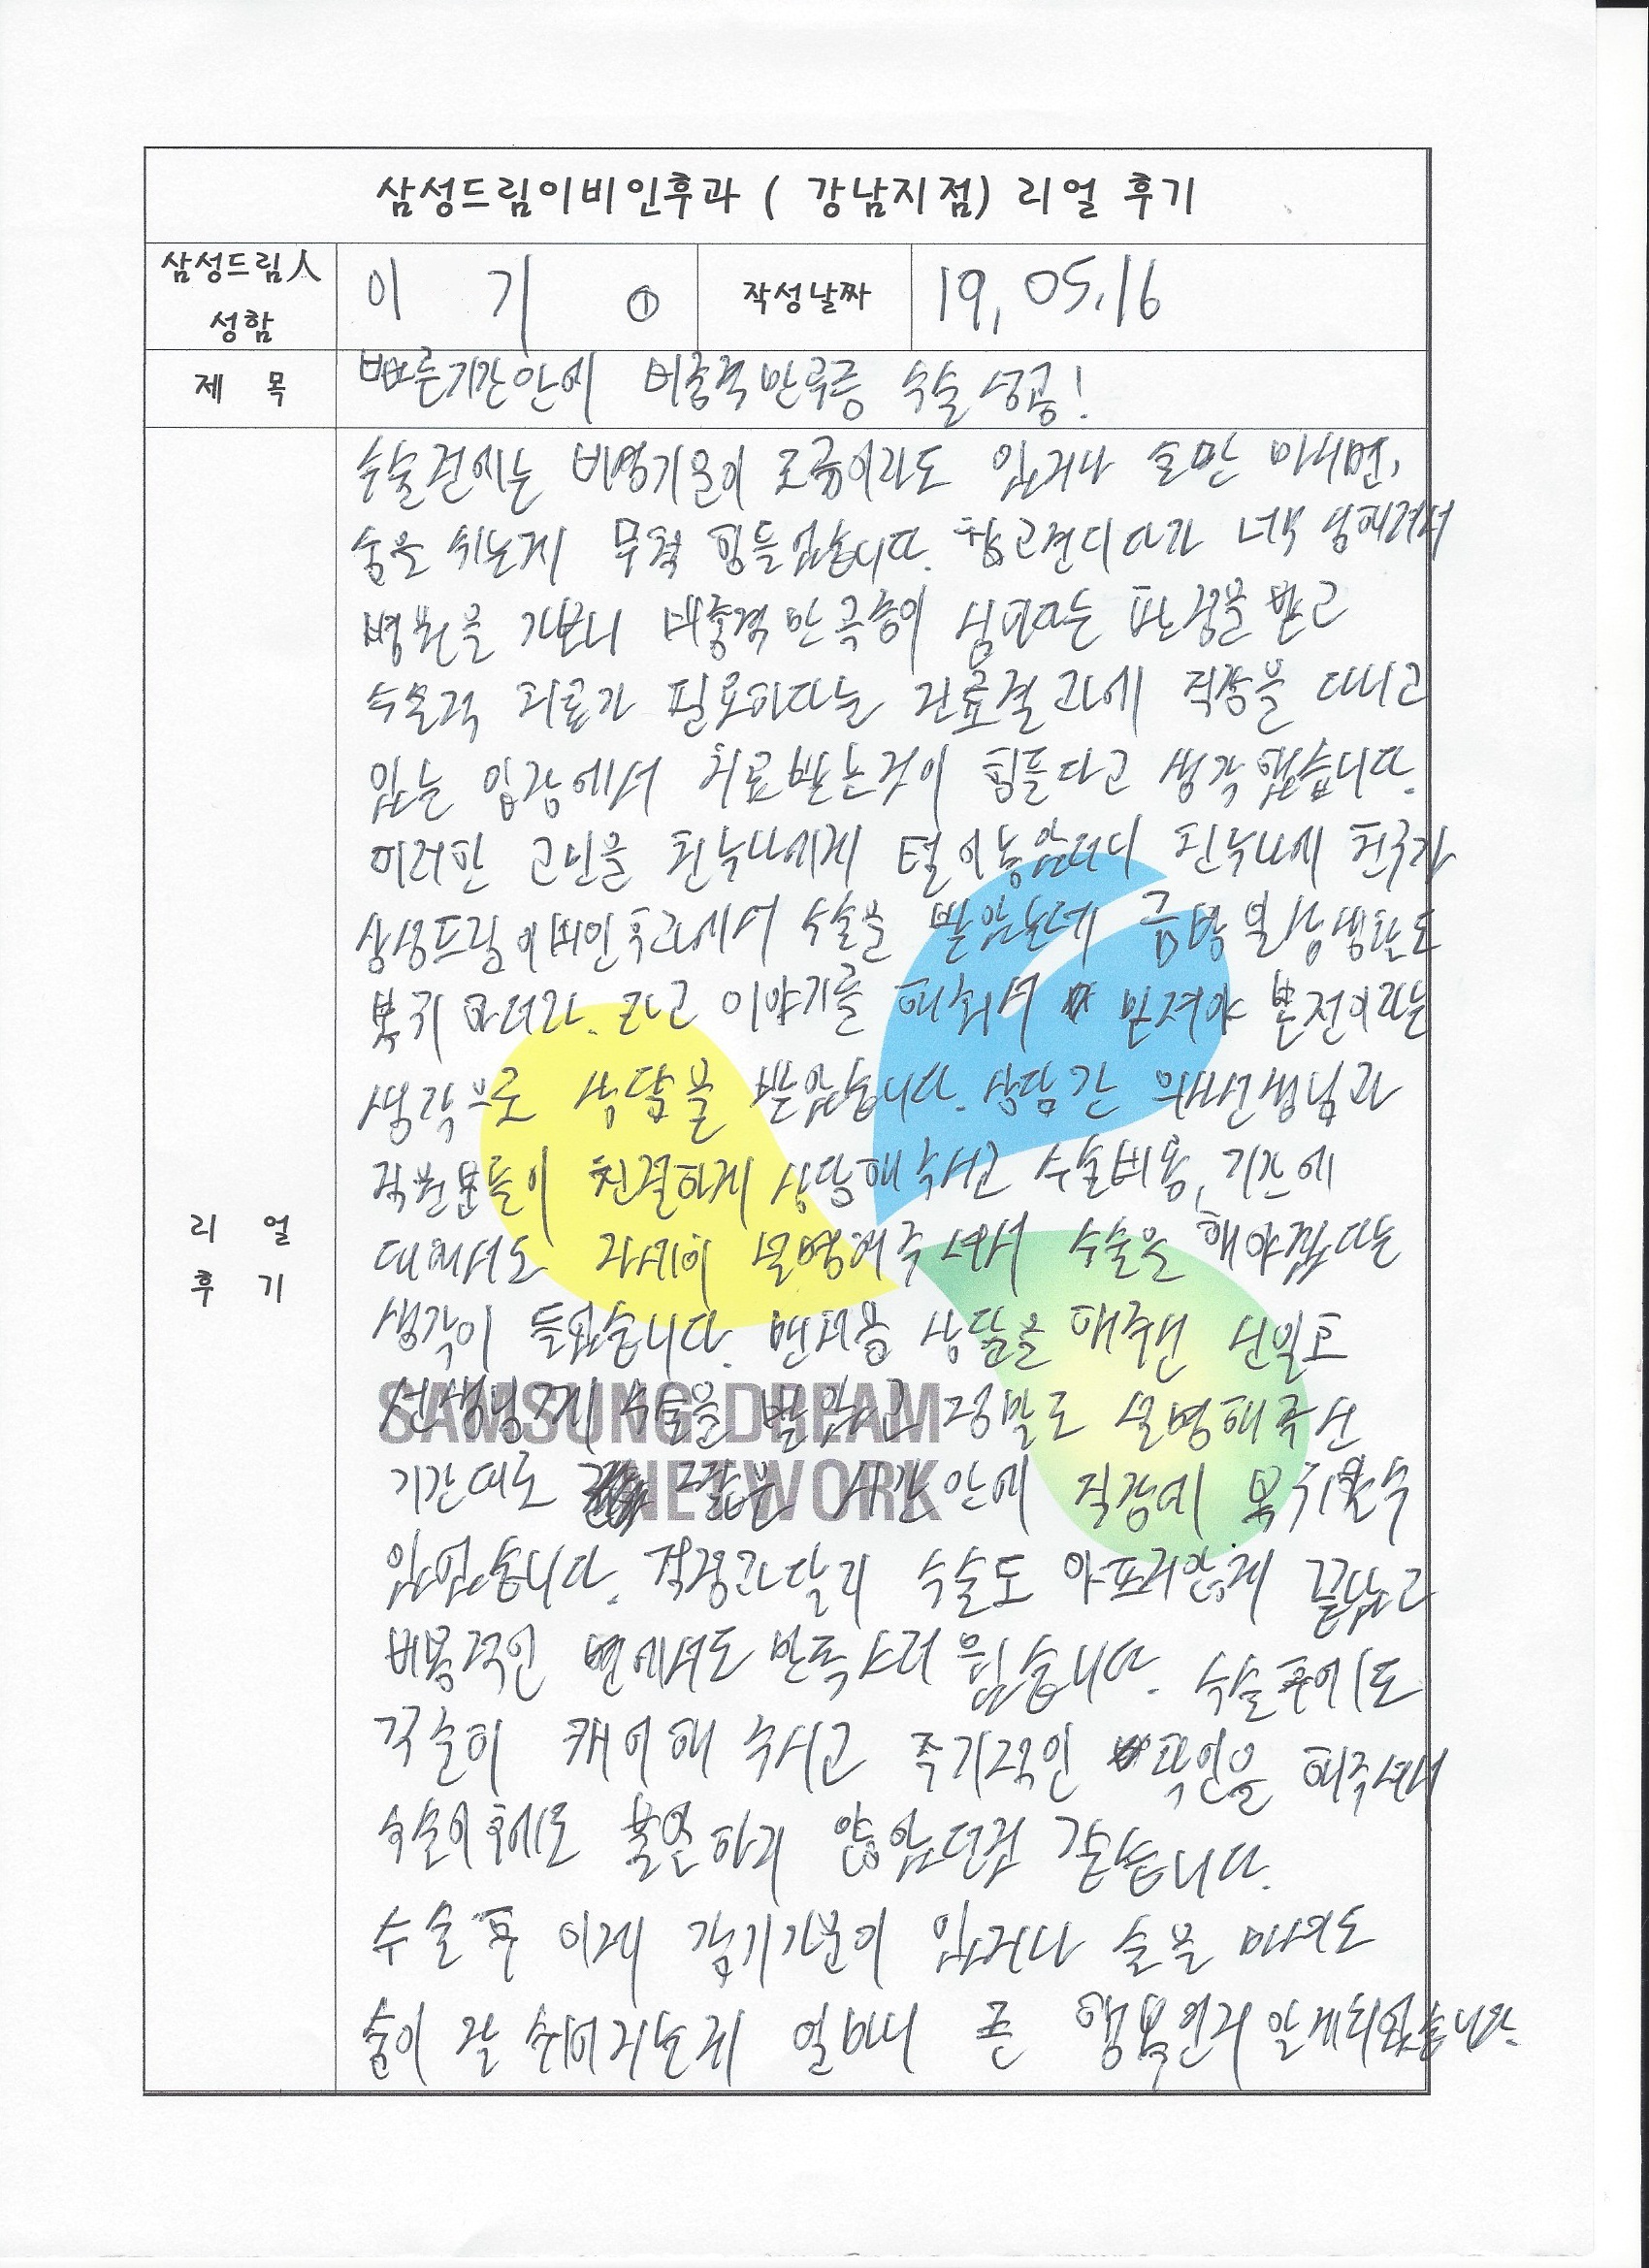 삼성드림이비인후과 ( 강남지점) 리얼 후기
삼성드림人 성함 이 기 ① 작성날짜 19. 05. 16
제 목 빠른기간안에 비중격만곡증 수술 성공!
리 얼
후 기
수술전에는 비염기운이 조금이라도 있거나 술만 마시면,
숨을 쉬는게 무척 힘들었습니다. 참고견디다가 너무 심해져서
병원을 가보니 비중격만곡증이 심하다는 판정을 받고
수술적 치료가 필요하다는 진료결과에 직장을 다니고
있는 입장에서 치료받는것이 힘들다고 생각했습니다.
이러한 고민을 친누나에게 털어놓았더니 친누나에 친구가
삼성드림이비인후과에서 수술을 받았는데 금방 일상생활로
복귀 하더라. 라고 이야기를 해줘서 만져야 본전이라는
생각으로 상담을 받았습니다. 상담간 의사선생님과
직원분들이 친절하게 상담해주시고 수술비용, 기간에
대해서도 자세히 설명해주셔서 수술을 해야겠다는
생각이 들었습니다. 맨처음 상담을 해주신
선생님께 수술을 받았고 정말로 설명해주신
기간대로 짧은 시간안에 직장에 복귀할수
있었습니다. 걱정과달리 수술도 아프지않게 끝났고
비용적인 면에서도 만족스러웠습니다. 수술후에도
꾸준히 케어해 주시고 주기적인 확인을 해주셔서
수술이후에도 불안하지 않았던것 같습니다.
수술후 이제 감기기운이 있거나 술을 마셔도
숨이 잘 쉬어지는게 얼마나 큰 행복인지 알게되었습니다.
SAMSUNG DREAM
NETWORK